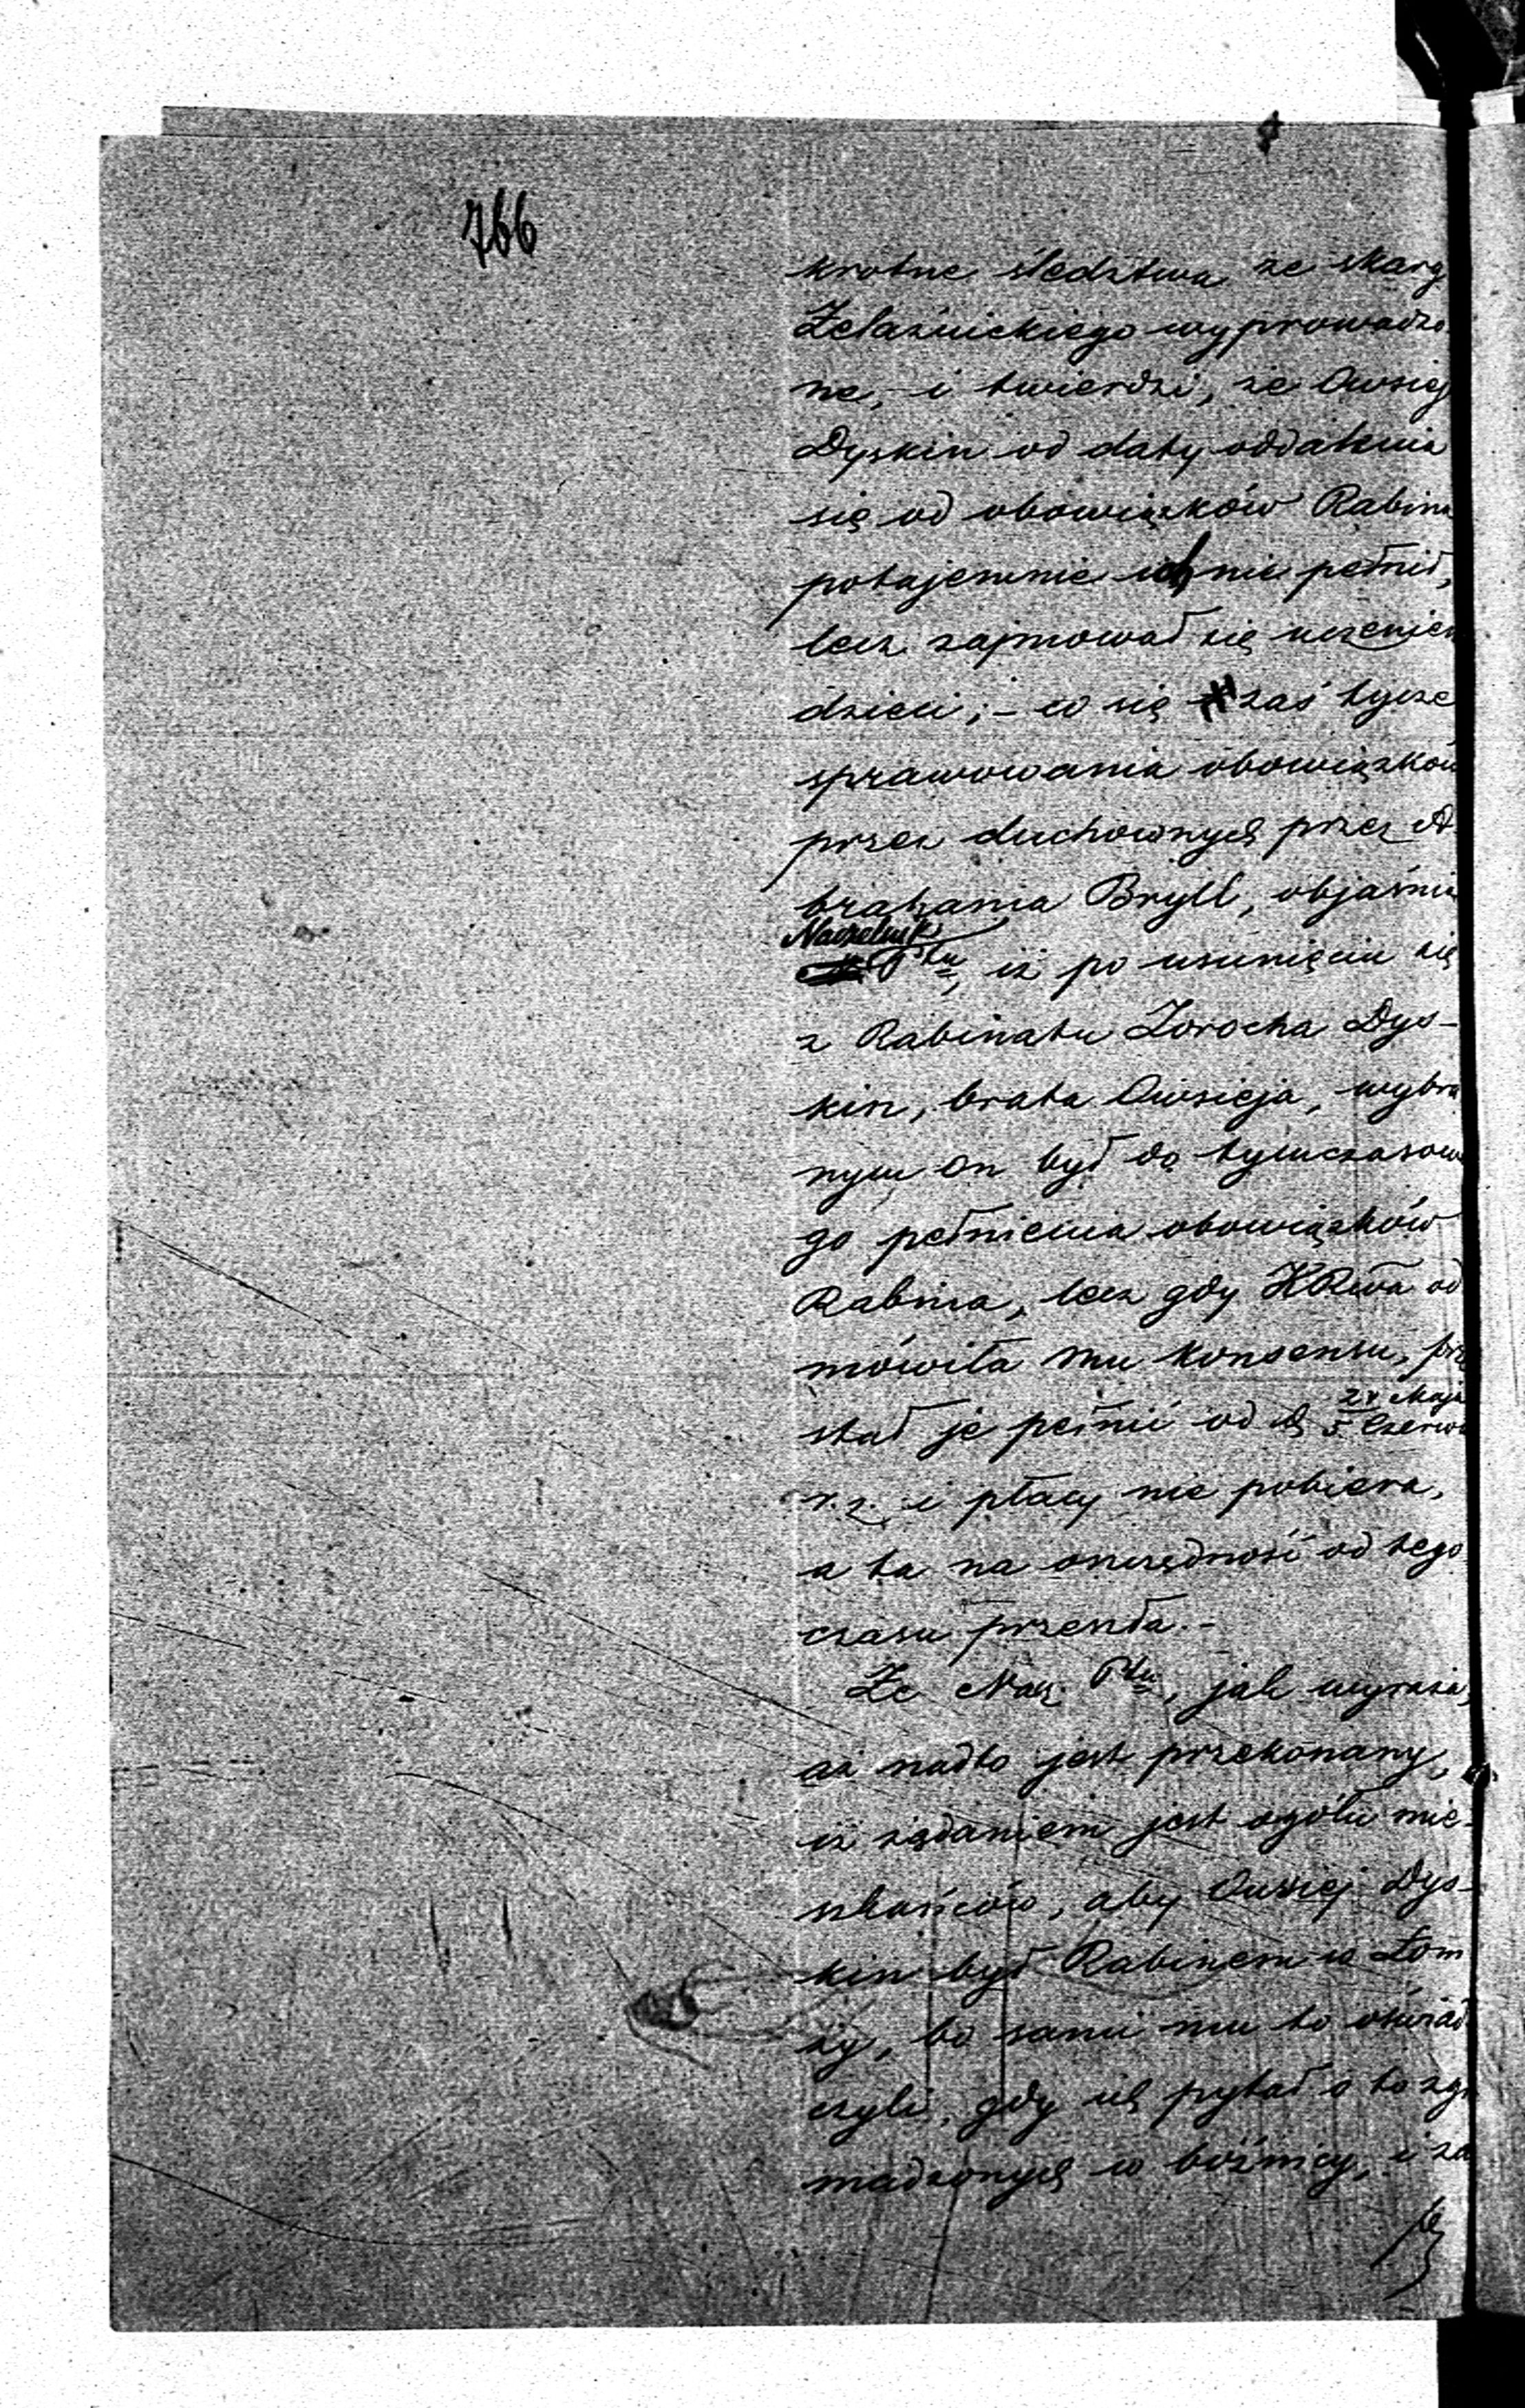 766
krotne śledztwa ze skarg
Zelaznickiego wyprowadzo
ne, - i twierdzi, że Owsiej
Dyskin od daty oddalenia
się od obowiązków Rabina
potajemnie ich nie pełnił,
lecz zajmował się uczeniem
dzieci; - co się zaś tycze
sprawowania obowiązków
przez duchownych przez A
brahama Bryll, objaśnia
Naczelnik Ptu, iż po usunięciu się
z Rabinatu Zorocha Dys-
kin, brata Owsieja, wybra
nym on był do tymczasowe
go pełnienia obowiązków
Rabina, lecz gdy KRwa od
mówiła mu konsensu, prze
stał je pełnić od d 24 Maja
5 Czerwca
r. z. i płacy nie pobiera,
a ta na oszczędność od tego
czasu przeszła. -
Że Nacz. Ptu, jak wyraża,
aż nadto jest przekonany,
iż żądaniem jest ogółu mie-
szkańców, aby Owsiej Dys-
kin był Rabinem w Łom
ży, bo sami mu to oświad
czyli, gdy ich pytał o to zgro
madzonych w bóźnicy, i za